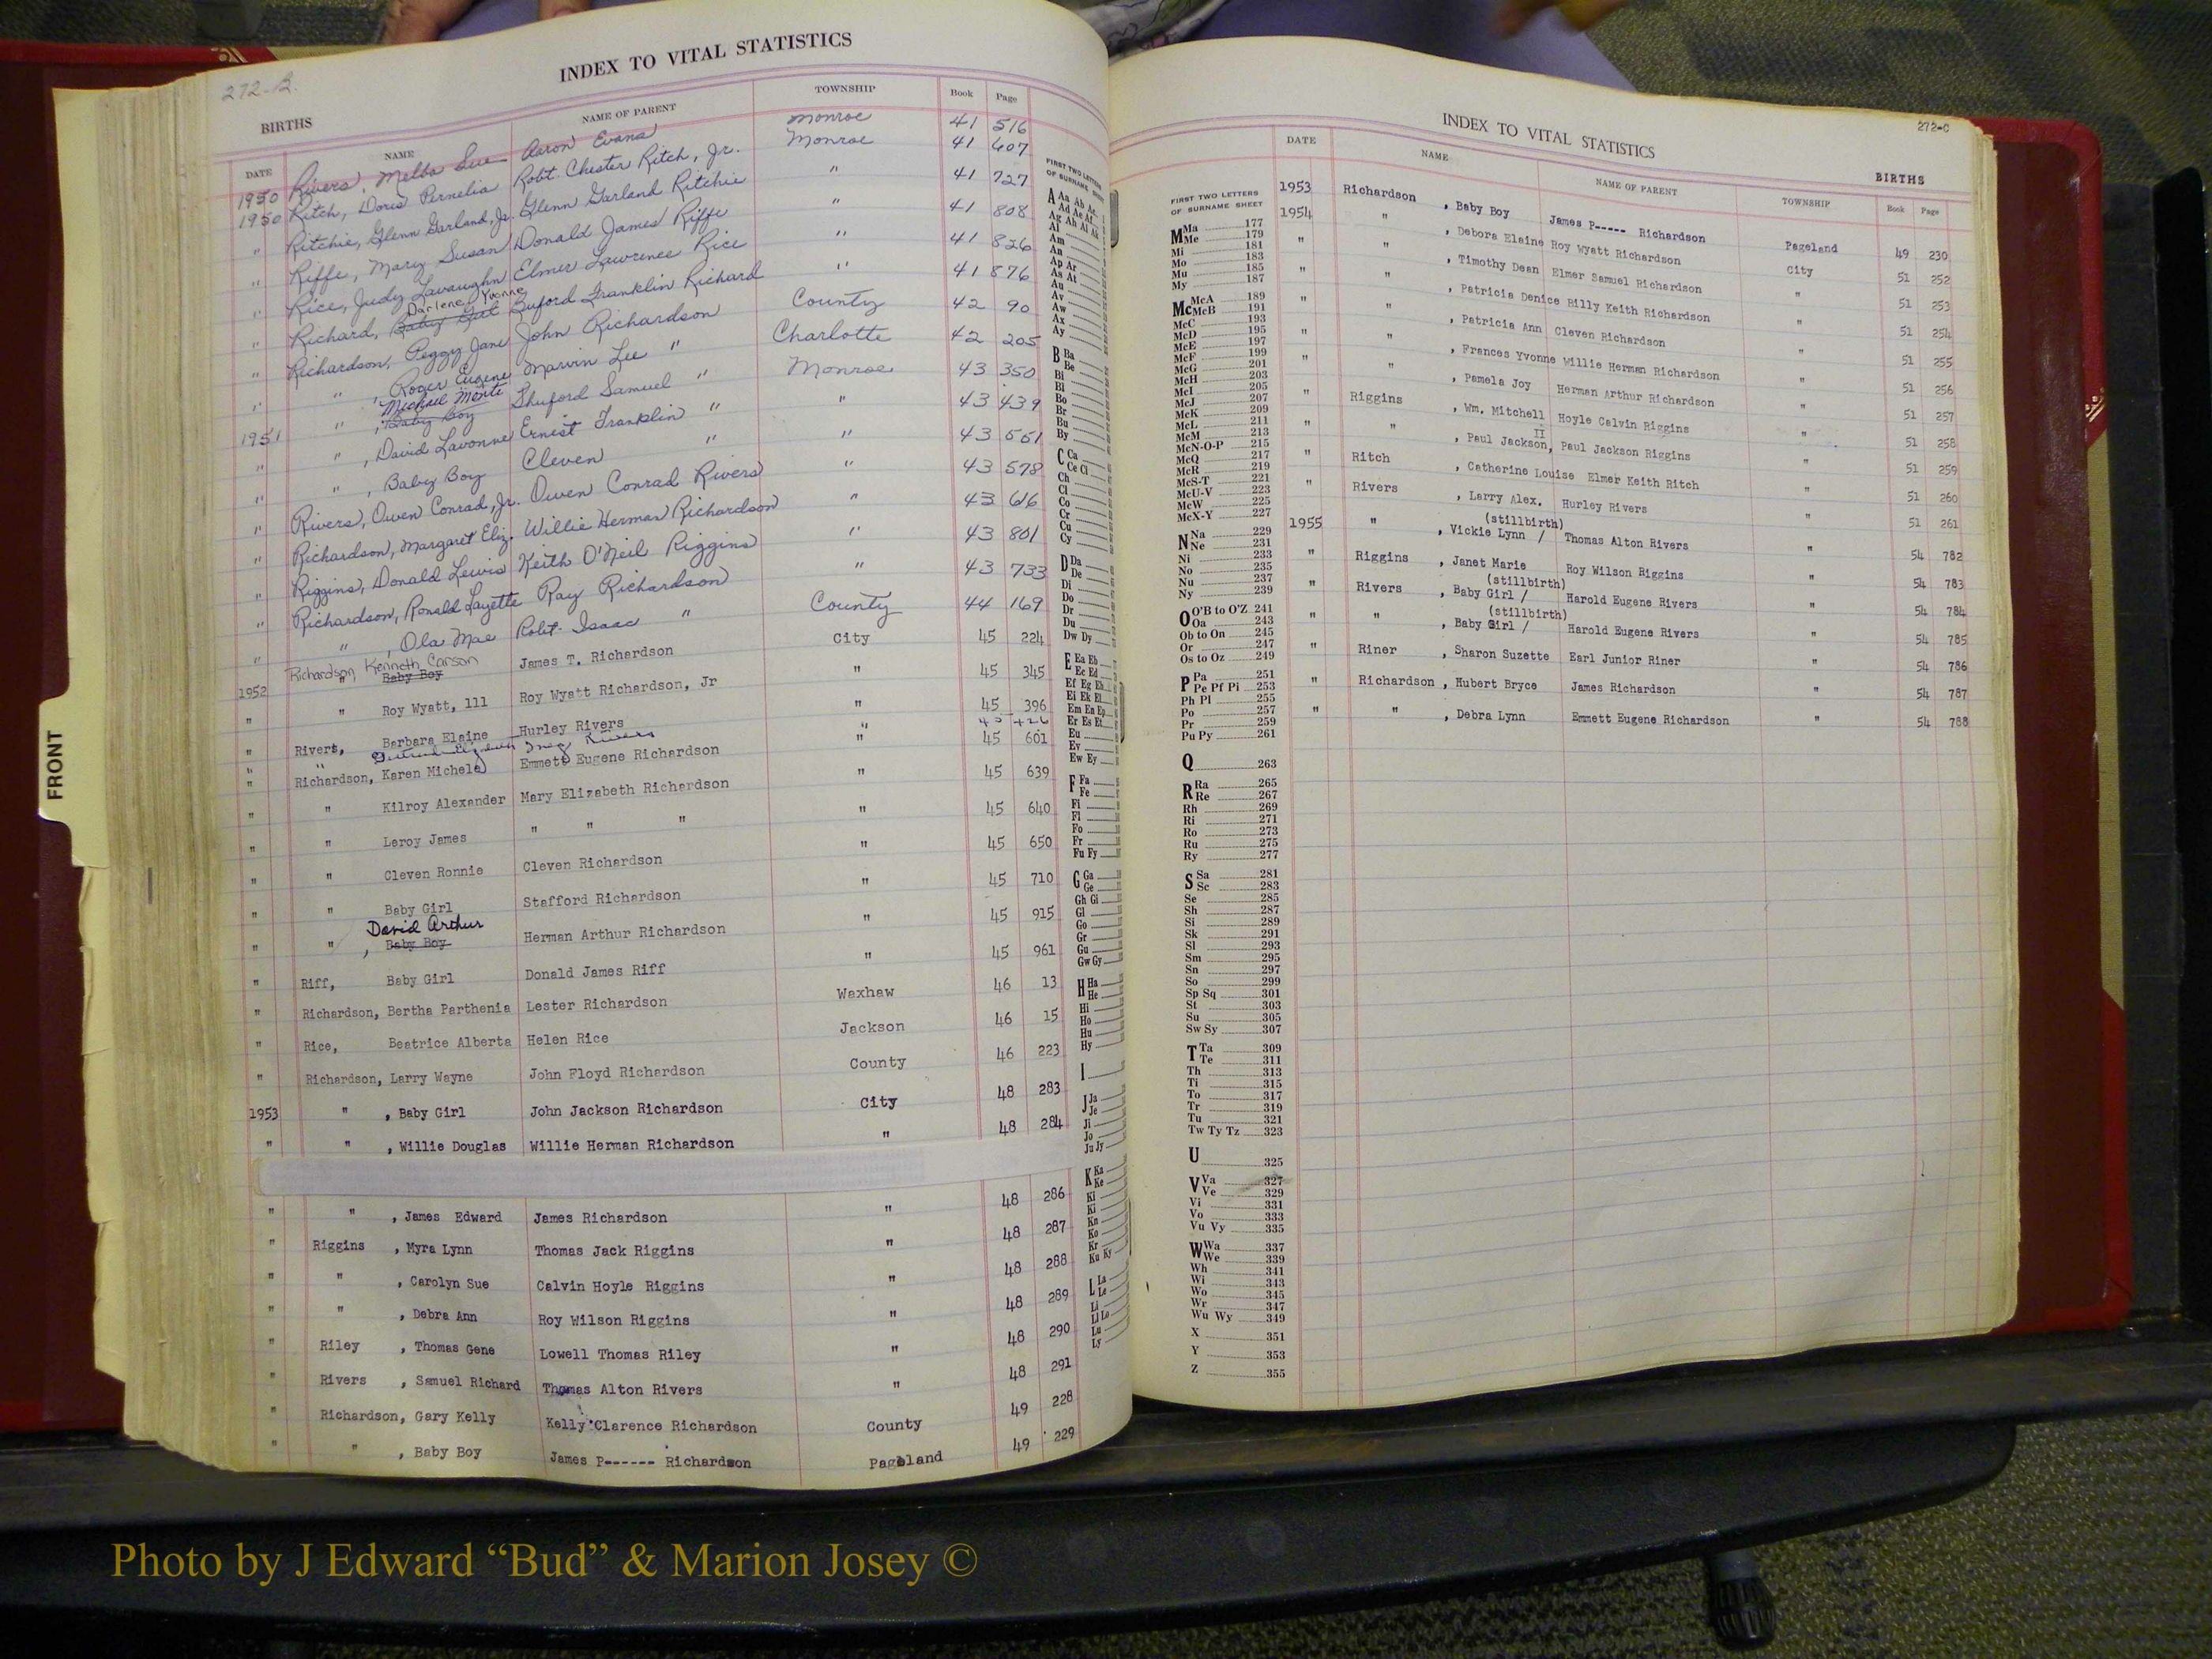 272-B.
INDEX TO VITAL STATISTICS
BIRTHS
DATE NAME NAME OF PARENT TOWNSHIP Book Page
1950 Rivers, Melba Sue Aaron Evans Monroe 41 516
1950 Ritch, Doris Pernelia Robt. Chester Ritch, Jr. Monroe 41 607
" Ritchie, Glenn Garland, Jr. Glenn Garland Ritchie " 41 727
" Riffe, Mary Susan Donald James Riffe " 41 808
" Rice, Judy Lavaughn Elmer Lawrence Rice " 41 826
Darlene Yvonne
" Richard, Baby Girl Buford Franklin Richard " 41 876
" Richardson, Peggy Jane John Richardson County 42 90
" " , Roger Eugene Marvin Lee " Charlotte 42 205
Michael Monte
1951 " , Baby Boy Shuford Samuel " Monroe 43 350
" " , David Lavonne Ernest Franklin " " 43 439
" " , Baby Boy Cleven " " 43 551
" Rivers, Owen Conrad, Jr. Owen Conrad Rivers " 43 578
" Richardson, Margaret Eliz. Willie Herman Richardson " 43 616
" Riggins, Donald Lewis Keith O'Neil Riggins " 43 801
" Richardson, Ronald Layette Ray Richardson " 43 733
" " , Ola Mae Robt. Isaac " County 44 169
Richardson, Kenneth Carson
1952 " Baby Boy James T. Richardson City 45 224
" " Roy Wyatt, 111 Roy Wyatt Richardson, Jr " 45 345
" Rivers, Barbara Elaine Hurley Rivers " 45 396
" " Rivers " 45 426
" Richardson, Karen Michele Emmett Eugene Richardson " 45 601
" " Kilroy Alexander Mary Elizabeth Richardson " 45 639
" " Leroy James " " " " 45 640
" " Cleven Ronnie Cleven Richardson " 45 650
" " Baby Girl Stafford Richardson " 45 710
David Arthur
" " , Baby Boy Herman Arthur Richardson " 45 915
" Riff, Baby Girl Donald James Riff " 45 961
" Richardson, Bertha Parthenia Lester Richardson Waxhaw 46 13
" Rice, Beatrice Alberta Helen Rice Jackson 46 15
" Richardson, Larry Wayne John Floyd Richardson County 46 223
1953 " , Baby Girl John Jackson Richardson City 48 283
" " , Willie Douglas Willie Herman Richardson " 48 284
" " , James Edward James Richardson " 48 286
" Riggins , Myra Lynn Thomas Jack Riggins " 48 287
" " , Carolyn Sue Calvin Hoyle Riggins " 48 288
" " , Debra Ann Roy Wilson Riggins " 48 289
" Riley , Thomas Gene Lowell Thomas Riley " 48 290
" Rivers , Samuel Richard Thomas Alton Rivers " 48 291
" Richardson, Gary Kelly Kelly Clarence Richardson County 49 228
" " , Baby Boy James P------ Richardson Pageland 49 229
FRONT
FIRST TWO LETTERS
OF SURNAME SHEET
A Aa Ab Ac
Ad Ae Af
Ag Ah Ai Ak
Al
Am
An
Ap Ar
As At
Au
Av
Aw
Ax
Ay
B Ba
Be
Bi
Bl
Bo
Br
Bu
By
C Ca
Ce Ci
Ch
Cl
Co
Cr
Cu
Cy
D Da
De
Di
Do
Dr
Du
Dw Dy
E Ea Eb
Ec Ed
Ef Eg Eh
Ei Ek El
Em En Ep
Er Es Et
Eu
Ev
Ew Ey
F Fa
Fe
Fi
Fl
Fo
Fr
Fu Fy
G Ga
Ge
Gh Gi
Gl
Go
Gr
Gu
Gw Gy
H Ha
He
Hi
Ho
Hu
Hy
I
J Ja
Je
Ji
Jo
Ju Jy
K Ka
Ke
Kl
Ki
Kn
Ko
Kr
Ku Ky
L La
Le
Li
Ll Lo
Lu
Ly
INDEX TO VITAL STATISTICS
272-C
BIRTHS
DATE NAME NAME OF PARENT TOWNSHIP Book Page
1953 Richardson , Baby Boy James P----- Richardson Pageland 49 230
1954 " , Debora Elaine Roy Wyatt Richardson City 51 252
" " , Timothy Dean Elmer Samuel Richardson " 51 253
" " , Patricia Denice Billy Keith Richardson " 51 254
" " , Patricia Ann Cleven Richardson " 51 255
" " , Frances Yvonne Willie Herman Richardson " 51 256
" " , Pamela Joy Herman Arthur Richardson " 51 257
" Riggins , Wm. Mitchell Hoyle Calvin Riggins " 51 258
II
" " , Paul Jackson, Paul Jackson Riggins " 51 259
" Ritch , Catherine Louise Elmer Keith Ritch " 51 260
" Rivers , Larry Alex. Hurley Rivers " 51 261
(stillbirth)
1955 " , Vickie Lynn / Thomas Alton Rivers " 54 782
" Riggins , Janet Marie Roy Wilson Riggins " 54 783
(stillbirth)
" Rivers , Baby Girl / Harold Eugene Rivers " 54 784
(stillbirth)
" " , Baby Girl / Harold Eugene Rivers " 54 785
" Riner , Sharon Suzette Earl Junior Riner " 54 786
" Richardson , Hubert Bryce James Richardson " 54 787
" " , Debra Lynn Emmett Eugene Richardson " 54 788
FIRST TWO LETTERS
OF SURNAME SHEET
M Ma 177
Me 179
Mi 181
Mo 183
Mu 185
My 187
Mc McA 189
McB 191
McC 193
McD 195
McE 197
McF 199
McG 201
McH 203
McI 205
McJ 207
McK 209
McL 211
McM 213
McN-O-P 215
McQ 217
McR 219
McS-T 221
McU-V 223
McW 225
McX-Y 227
N Na 229
Ne 231
Ni 233
No 235
Nu 237
Ny 239
O O'B to O'Z 241
Oa 243
Ob to On 245
Or 247
Os to Oz 249
P Pa 251
Pe Pf Pi 253
Ph Pl 255
Po 257
Pr 259
Pu Py 261
Q 263
R Ra 265
Re 267
Rh 269
Ri 271
Ro 273
Ru 275
Ry 277
S Sa 281
Sc 283
Se 285
Sh 287
Si 289
Sk 291
Sl 293
Sm 295
Sn 297
So 299
Sp Sq 301
St 303
Su 305
Sw Sy 307
T Ta 309
Te 311
Th 313
Ti 315
To 317
Tr 319
Tu 321
Tw Ty Tz 323
U 325
V Va 327
Ve 329
Vi 331
Vo 333
Vu Vy 335
W Wa 337
We 339
Wh 341
Wi 343
Wo 345
Wr 347
Wu Wy 349
X 351
Y 353
Z 355
Photo by J Edward “Bud” & Marion Josey ©